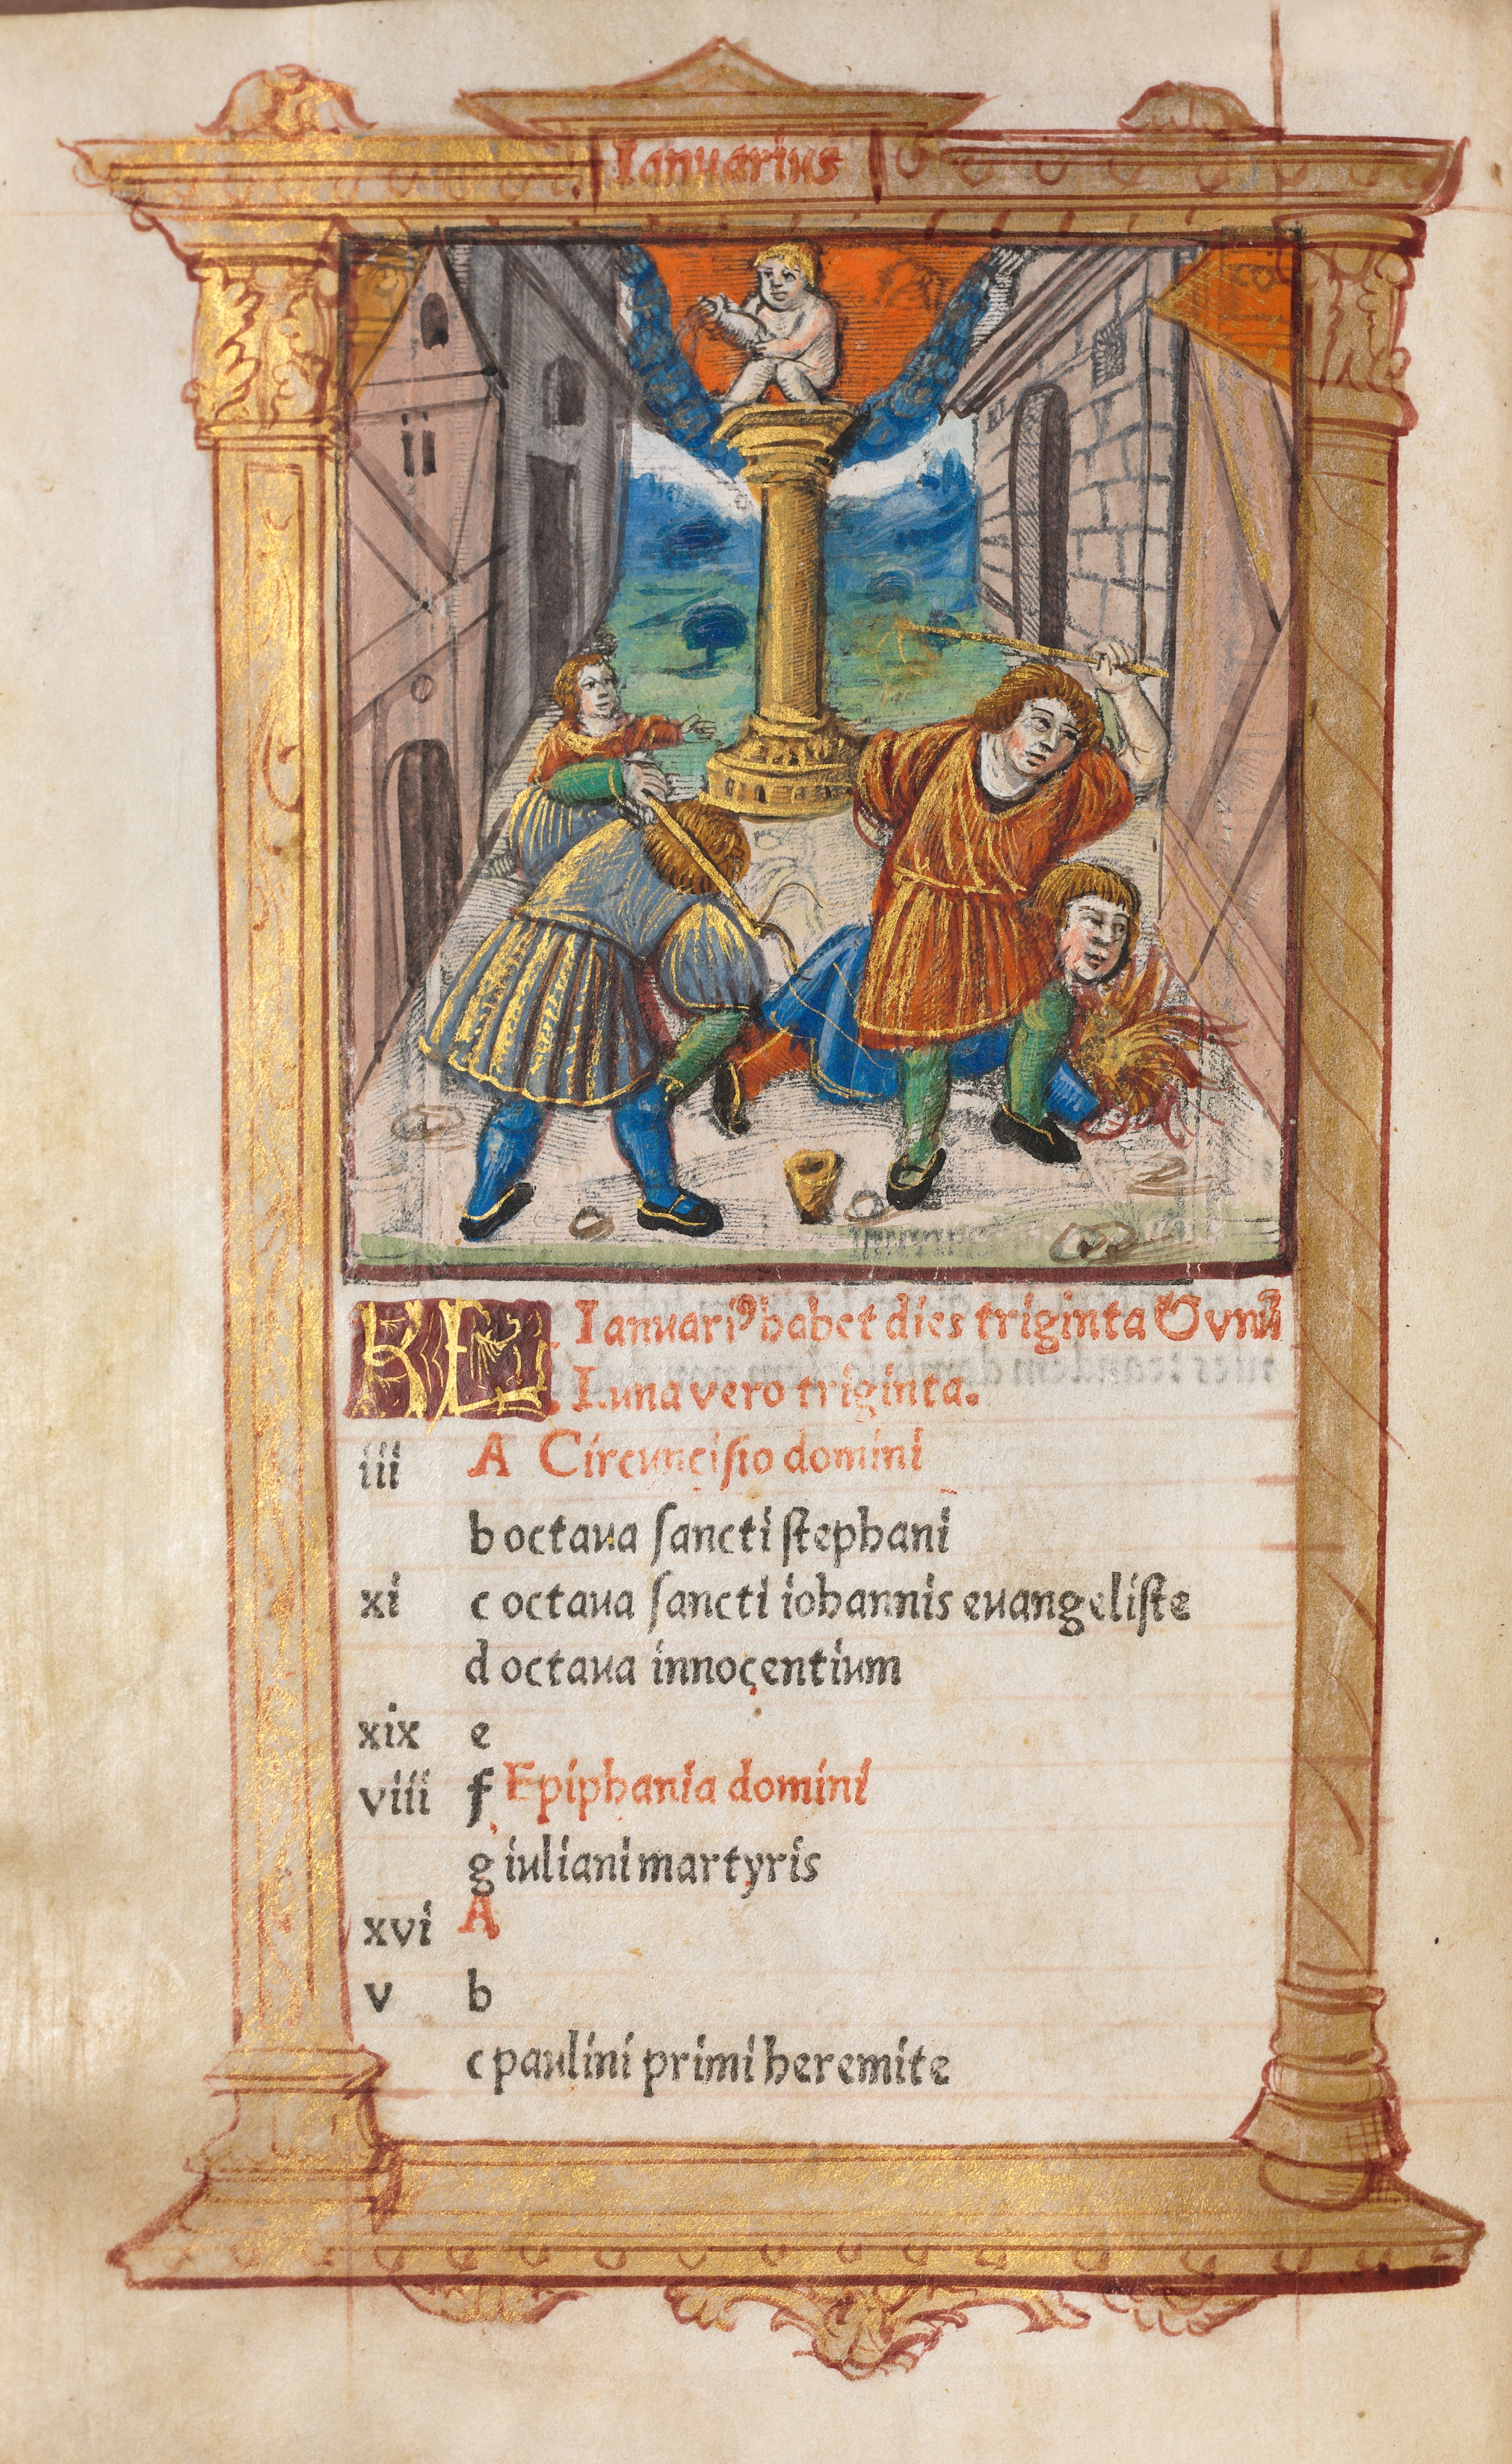 Ianuarius
KL Ianuariꝯ habet dies triginta Vnũ
Luna vero triginta.
iii A Circuncisio domini
b octaua sancti stephani
xi c octaua sancti iohannis euangeliste
d octaua innocentium
xix e
viii f Epiphania domini
g iuliani martyris
xvi A
v b
c paulini primi heremite